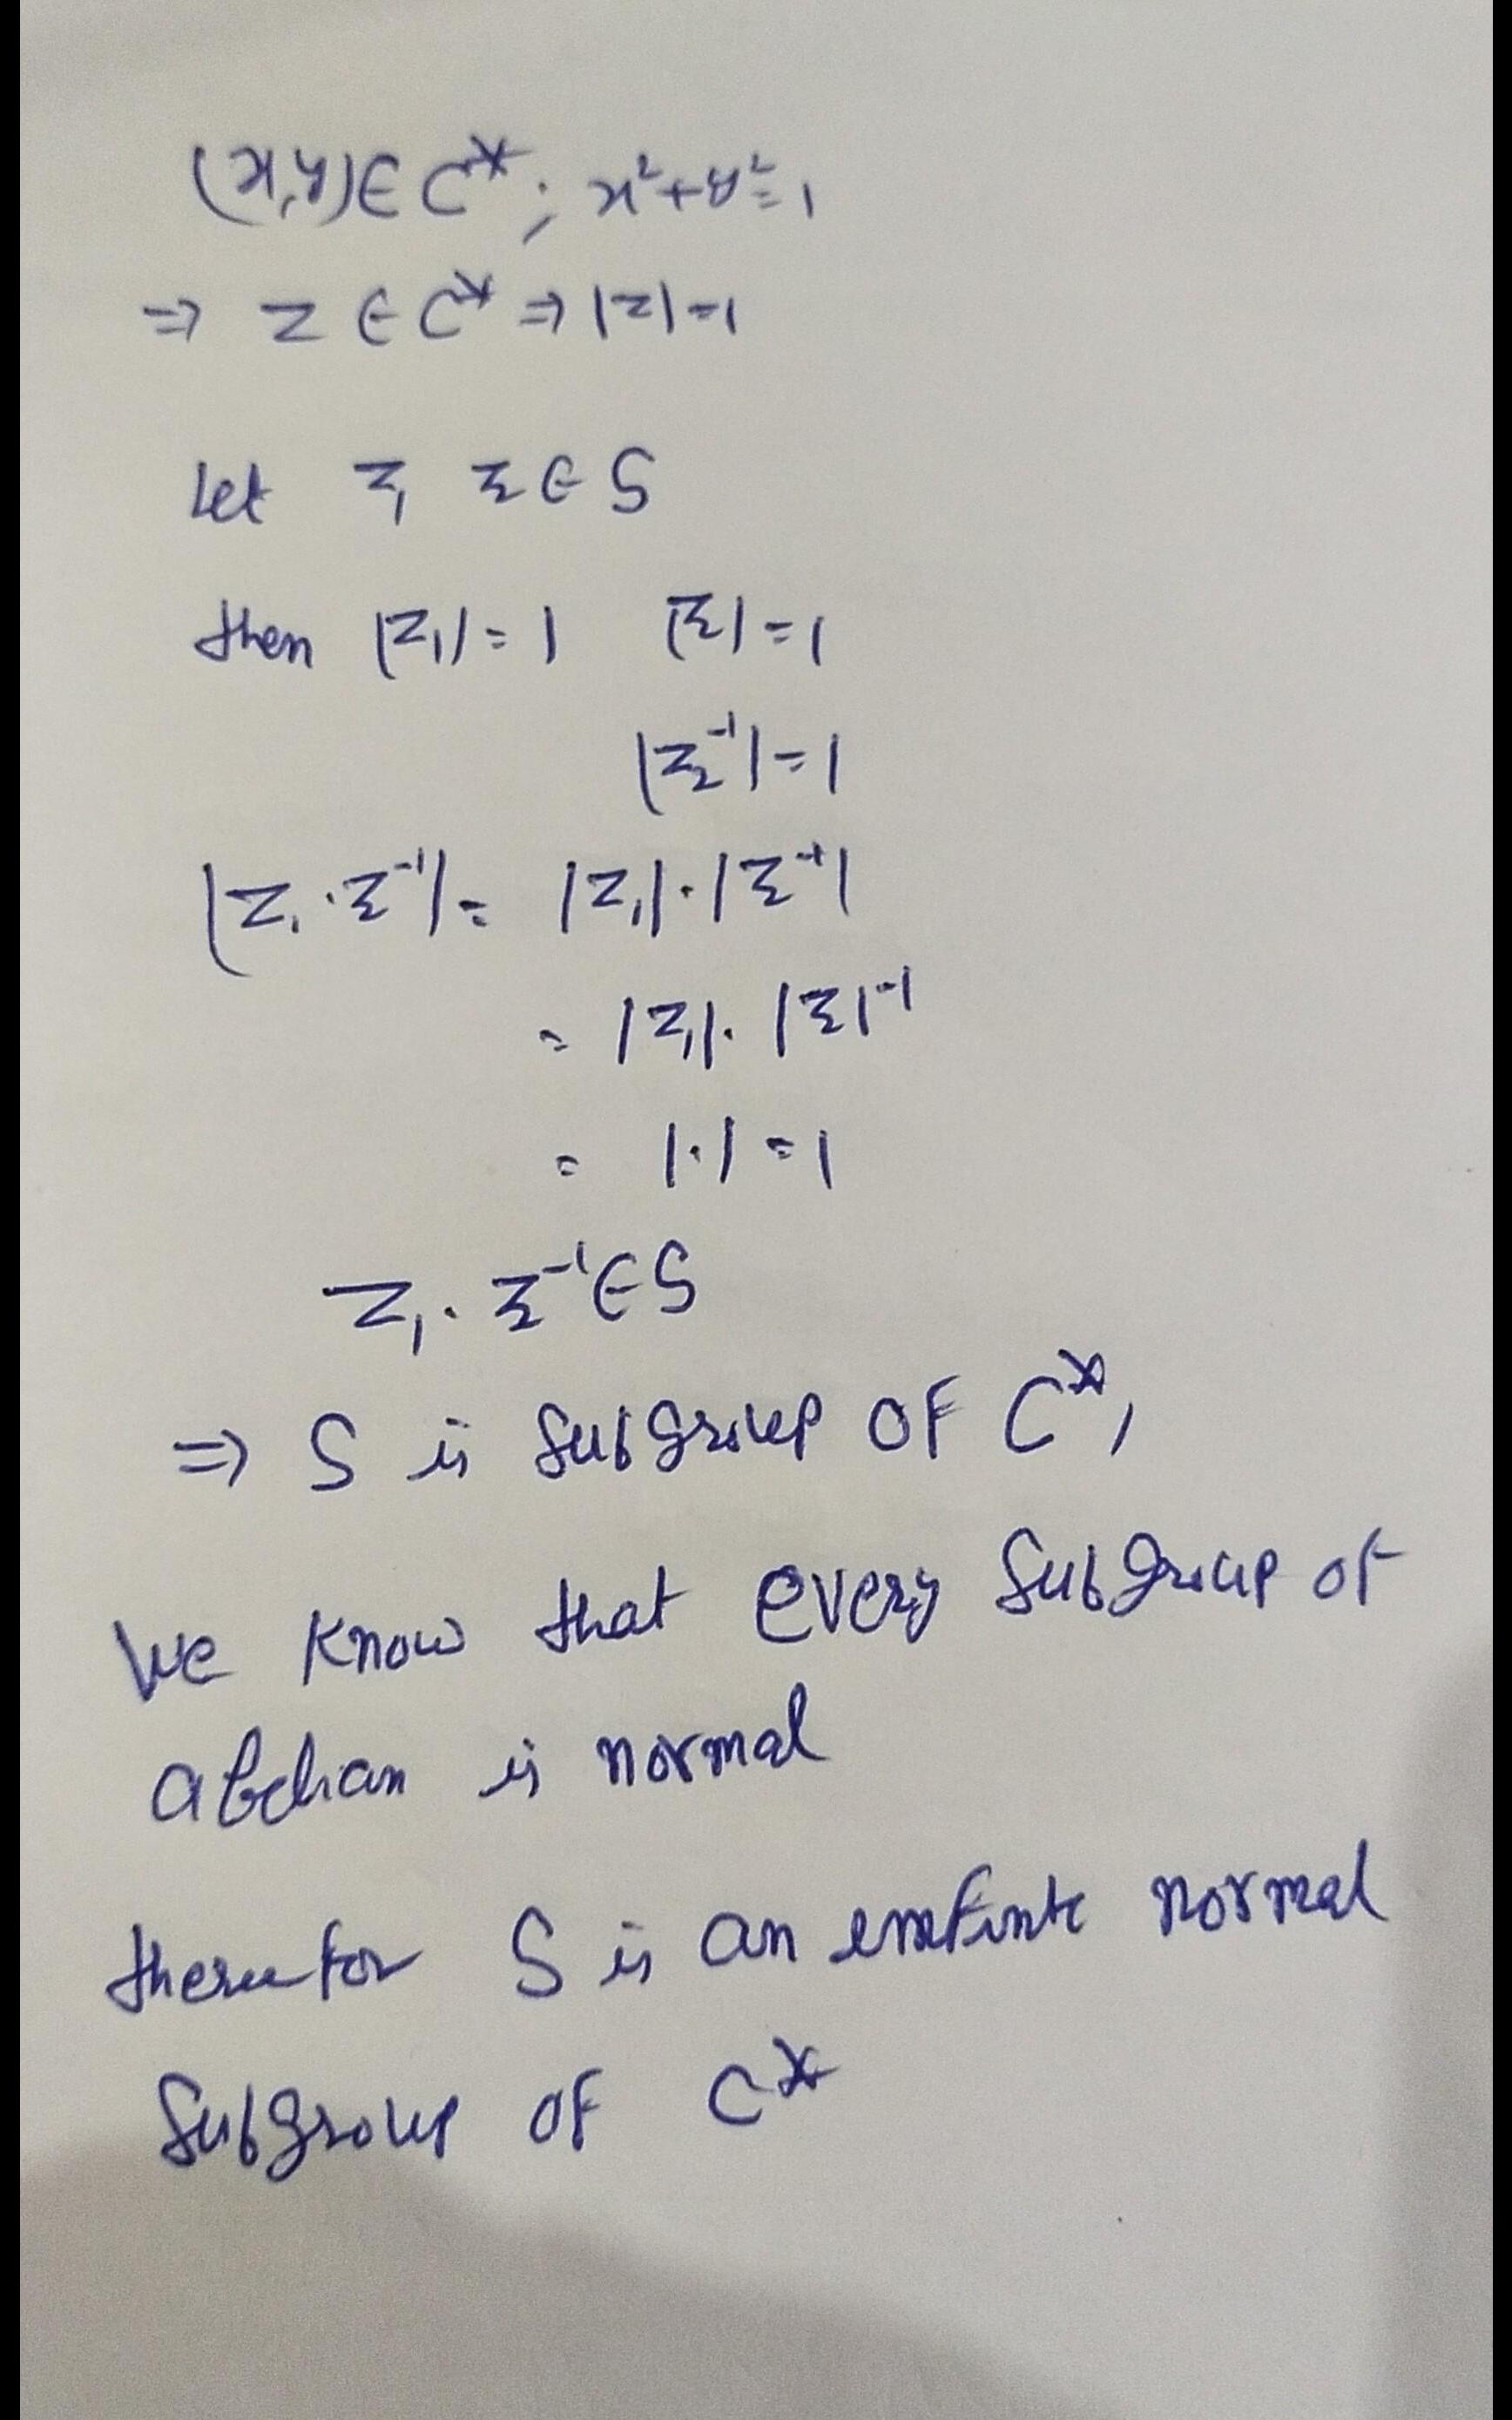 (x,y)∈ C*; x²+y²=1
⇒ z ∈ C* ⇒ |z|=1
Let z₁ z₂ ∈ S
then |z₁|=1 |z₂|=1
|z₂⁻¹|=1
|z₁·z₂⁻¹| = |z₁|·|z₂⁻¹|
= |z₁|·|z₂|⁻¹
= 1·1=1
z₁·z₂⁻¹∈S
⇒ S is subgroup of C*,
We know that every subgroup of
abelian is normal
therefor S is an enfinte normal
subgroup of C*